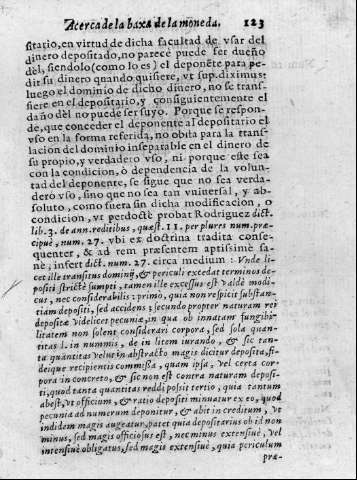 Acerca de la baxa de la moneda. 123
sitario, en virtud de dicha facultad de vsar del
dinero depositado, no parece puede ser dueño
dèl, siendolo (como lo es) el deponẽte para pe-
dir su dinero quando quisiere, vt sup. diximus;
luego el dominio de dicho dinero, no se trans-
fiere en el depositario, y consiguientemente el
daño dèl no puede ser suyo. Porque se respon-
de, que conceder el deponente al depositario el
vso en la forma referida, no obsta para la trans-
lacion del dominio inseparable en el dinero de
su propio, y verdadero vso, ni porque este sea
con la condicion, ò dependencia de la volun-
tad del deponente, se sigue que no sea verda-
dero vso, sino que no sea tan vniuersal, y ab-
soluto, como fuera sin dicha modificacion, o
condicion, vt perdoctè probat Rodriguez dict.
lib. 3. de ann. reditibus, quæst. 11. per plures num. præ-
cipuè, num. 27. vbi ex doctrina tradita conse-
quenter, & ad rem præsentem aptissimè sa-
nè, infert dict. num. 27. circa medium: Vnde li-
cet ille transitus dominij, & periculi excedat terminos de-
positi strictè sumpti, tamen ille excessus est valdè modi-
cus, nec considerabilis: primo, quia non respicit substan-
tiam depositi, sed accidens: secundo propter naturam rei
depositæ videlicet pecuniæ, in qua ob innatam fungibi-
litatem non solent considerari corpora, sed sola quan-
titas l. in nummis, de in litem iurando, & sic tan-
ta quãntitas velut in abstracto magis dicitur deposita, fi-
deique recipientis commissa, quam ipsa, vel certa cor-
pora in concreto, & sic non est contra naturam deposi-
ti, quod tanta quantitas reddi possit tertio, quia tantum
abest, vt officium, & ratio depositi minuatur ex eo, quod
pecunia ad numerum deponitur, & abit in creditum, vt
indidem magis augeatur, patet quia depositarius ob id non
minus, sed magis officiosus est, nec minus extensiuè, vel
intensiuè obligatus, sed magis extensiuè, quia periculum
præ-